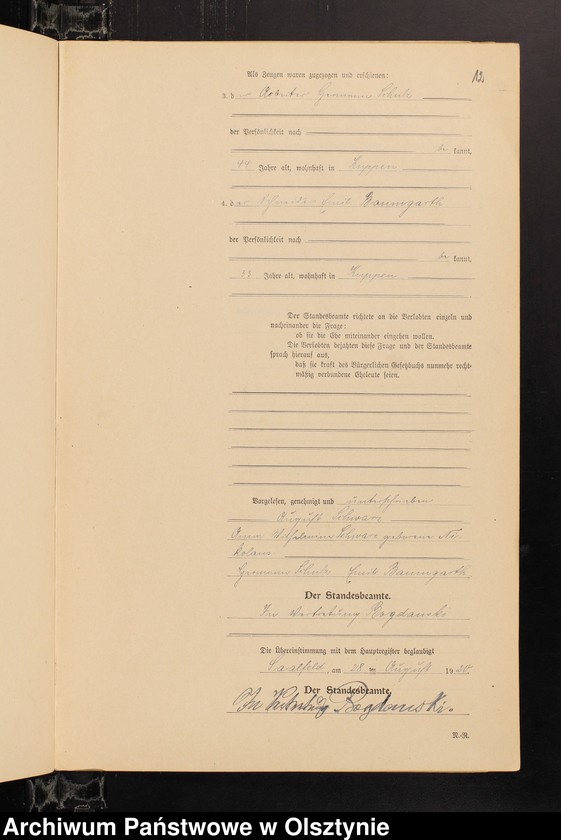 12.
Als Zeugen waren zugezogen und erschienen:
3. der Arbeiter Hermann Schulz
der Persönlichkeit nach
be kannt,
44 Jahre alt, wohnhaft in Kuppen
4. der Schneider Emil Baumgarth
der Persönlichkeit nach
be kannt,
Jahre alt, wohnhaft in Kuppen
Der Standesbeamte richtete an die Verlobten einzeln und
nacheinander die Frage:
ob sie die Ehe miteinander eingehen wollen.
Die Verlobten bejahten diese Frage und der Standesbeamte
sprach hierauf aus,
daß sie kraft des Bürgerlichen Gesetzbuchs nunmehr recht-
mäßig verbundene Eheleute seien.
Vorgelesen, genehmigt und unterschrieben
August Schwarz
Anna Wilhelmine Schwarz geborene Ni-
kolaus
Hermann Schulz Emil Baumgarth
Der Standesbeamte.
In Vertretung Bogdanski
Die Übereinstimmung mit dem Hauptregister beglaubigt
Saalfeld, am 28 ten August 1920.
Der Standesbeamte.
In Vertretung Bogdanski.
N.-R.
Archiwum Państwowe w Olsztynie